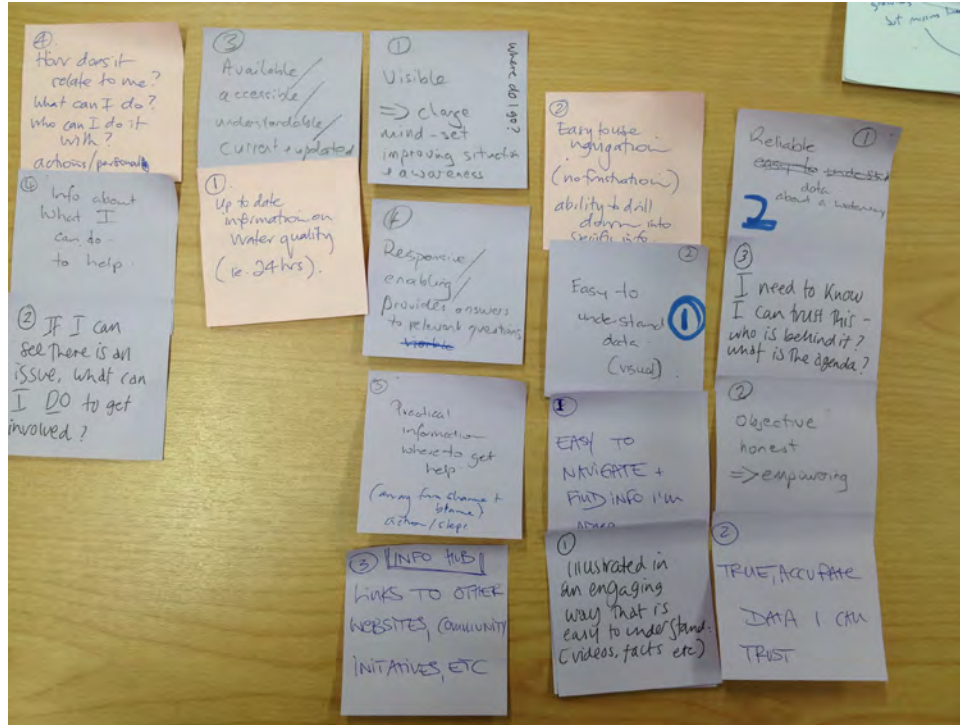 ④.
How does it
relate to me?
What can I do?
who can I do it
with?
actions/personal
④
Info about
what I
can do -
to help.
② IF I can
see there is an
issue, what can
I DO to get
involved?
③
Available
accessible
understandable
Current + updated
①.
Up to date
information on
Water quality
(ie. 24hrs).
①
where do I go?
Visible
=> change
mind-set
improving situation
& awareness
④
Responsive
enabling
provides answers
to relevant questions
visible
③
Practical
information
where to get
help -
(away from shame +
blame)
action/steps
③ INFO HUB
LINKS TO OTHER
WEBSITES, COMMUNITY
INITIATIVES, ETC
②
Easy to use
navigation
(no frustration)
ability to drill
down into
specific info.
②
Easy to
understand ①
data
(visual)
①
EASY TO
NAVIGATE +
FIND INFO I'M
①
Illustrated in
an engaging
way that is
easy to understand.
(videos, facts etc)
①
Reliable
easy to understand
data
about a waterway
2
③
I need to know
I can trust this -
who is behind it?
what is the agenda?
②
Objective
honest
=> empowering
②
TRUE, ACCURATE
DATA I CAN
TRUST
but missing